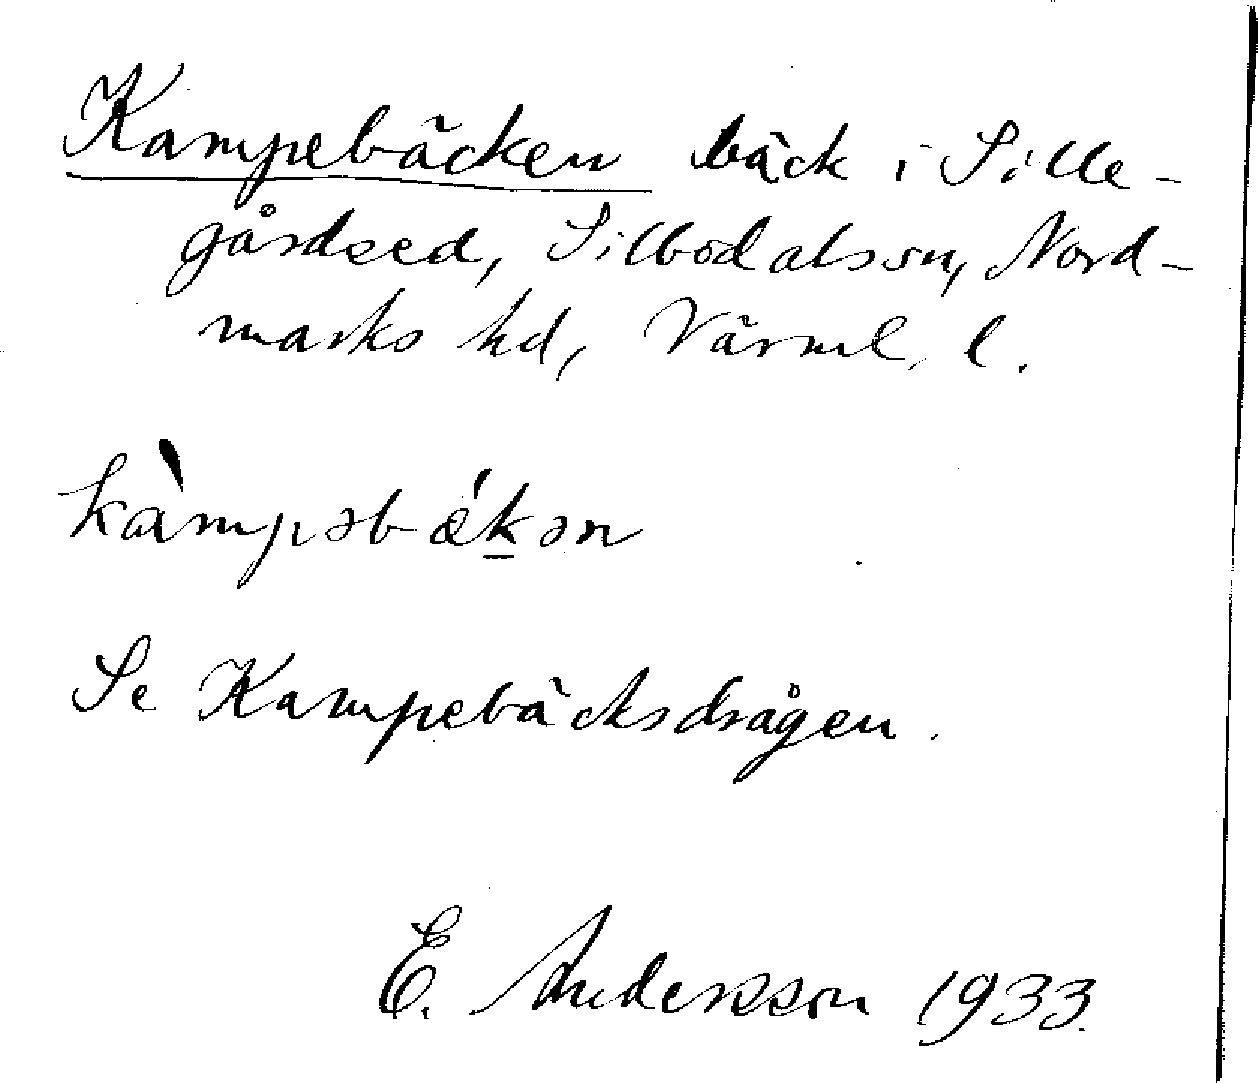 Kampebäcken bäck i Sille-
gårdsed, Silbodals sn, Nord-
marks hd, Värml. l.
kàmpəbǽk̲ən
Se Kampebäcksdrågen.
E. Andersson 1933.